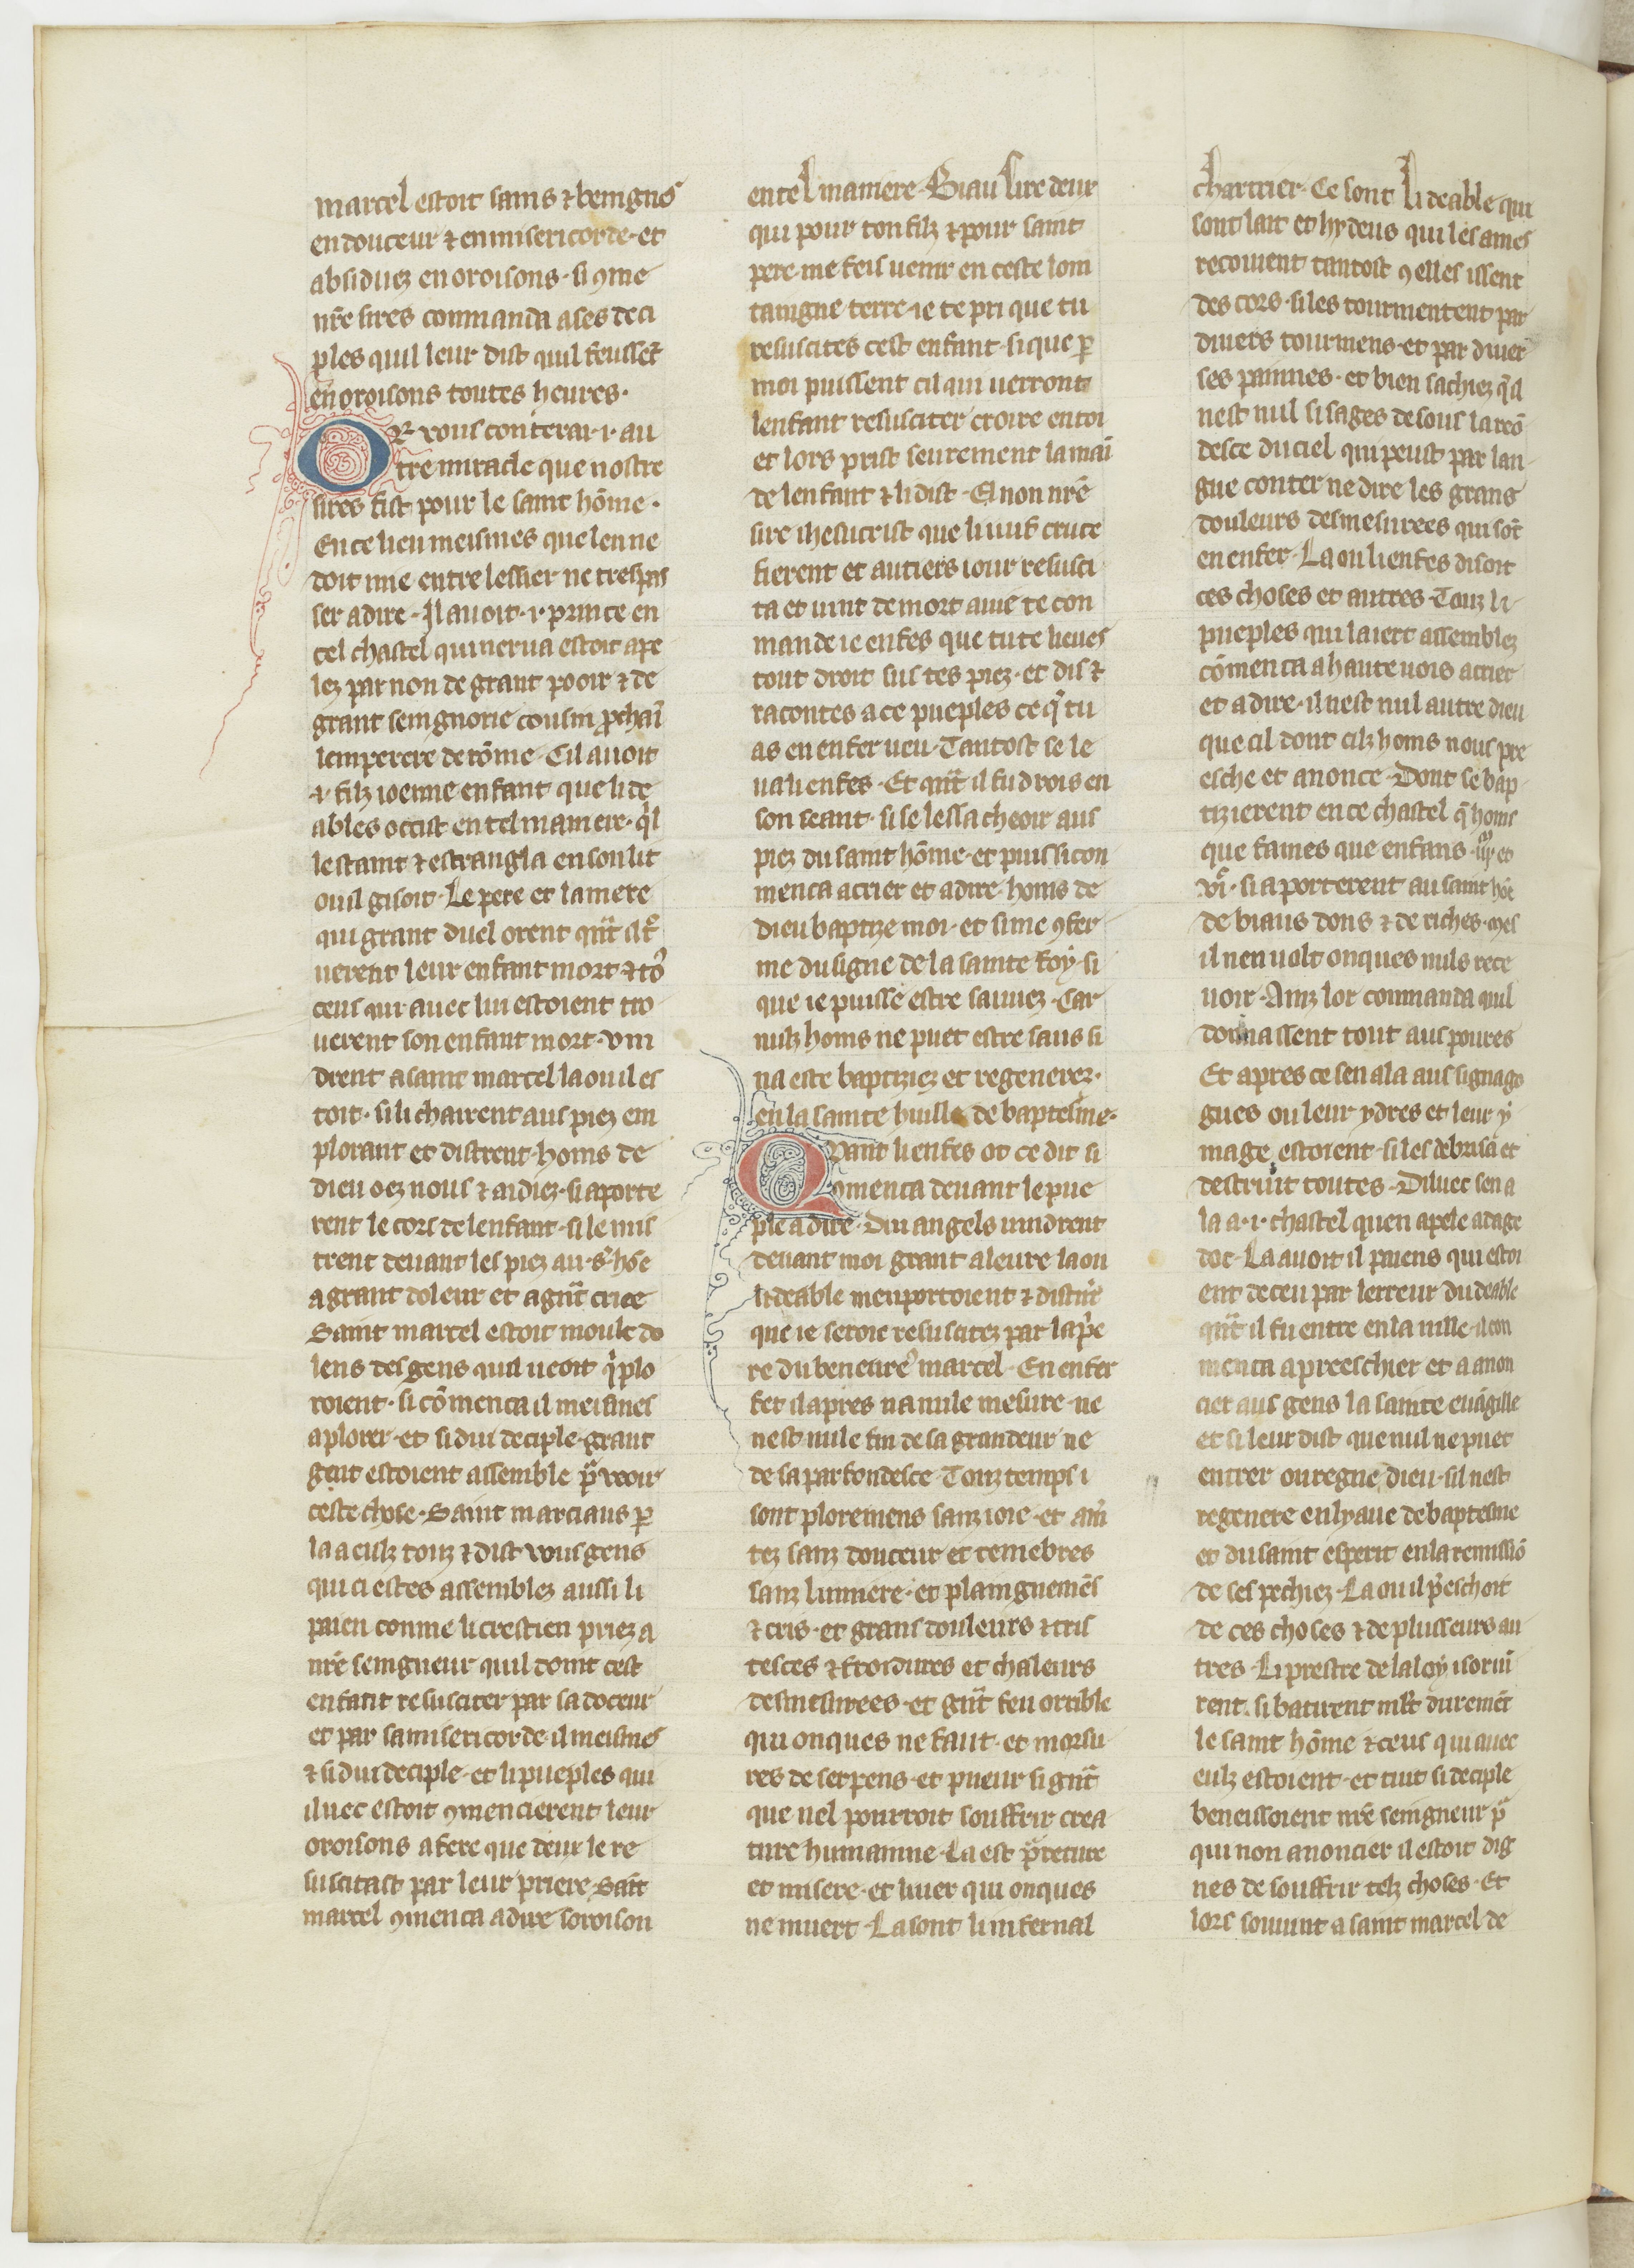 marcel estoit sains ⁊ benignes
en douceur ⁊ en misericorde · et
absiduez en oroisons · si ꝯme
nr̄e sires commanda a ses deci
ples quil leur dist quil feussēt
en oroisons toutes heures ·
Or vous conterai ·i· au
tre miracle que nostre
sires fist pour le saint hōme ·
En ce lieu meismes que len ne
doit mie entre lessier ne trespas
ser a dire · Il auoit ·i· prince en
cel chastel qui nerua estoit ape
lez par non de grant pooir ⁊ de
grant seingnorie cousin ꝓchaī
lemperere de rōme · Cil auoit
·i· filz joenne enfant que li de
ables occist en tel maniere · q̄l
lestaint ⁊ estrangla en son lit
ou il gisoit · Le pere et la mere
qui grant duel orent qn̄t il t͛
uerent leur enfant mort ⁊ to᷒
ceus qui auec lui estoient tro
uerent son enfant mort · vin
drent a saint marcel la ou il es
toit · si li chairent aus piez em
plorant et distrent · homs de
dieu oez nous ⁊ aidiez · si aporte
rent le cors de lenfant · si le mis
trent deuant les piez au ·s· hōe
a grant doleur et a gn̄t criee
Saint marcel estoit moult do
lens des gens quil ueoit q̄ plo
roient · si cōmenca il meismes
a plorer · et si dui deciple · grant
gent estoient assemble pͣ veoir
ceste chose · Saint marciaus ꝑ
la a eulz touz ⁊ dist vous gens
qui ci estes assemblez aussi li
paien comme li crestien priez a
nr̄e seingneur quil doint cest
enfant resusciter par sa doceur
et par sa misericorde · il meismes
⁊ si dui deciple · et li pueples qui
iluec estoit ꝯmencierent leur
oroisons a fere que deux le re
suscitast par leur priere · Sait
marcel ꝯmenca a dire soroison
en tel maniere · Biau sire deux
qui pour ton filz ⁊ pour saint
pere me feis uenir en ceste loin
taingne terre · ie te pri que tu
resuscites cest enfant · si que ꝑ
moi puissent cil qui uerront
lenfant resusciter croire en toi
et lors prist seurement la maī
de lenfant ⁊ li dist · El non nr̄e
sire ihesucrist que li iuif cruce
fierent et au tiers iour resusci
ta et uint de mort a uie te con
mande ie enfes que tu te lieues
tout droit sus tes piez · et dis ⁊
racontes a ce pueples ce q̄ tu
as en enfer ueu · Tantost se le
ua li enfes · Et qn̄t il fu drois en
son seant · si se lessa cheoir aus
piez du saint hōme · et puis si con
menca a crier et a dire · homs de
dieu baptize moi · et si me ꝯfer
me du signe de la sainte foy · si
que ie puisse estre sauuez · Car
nulz homs ne puet estre saus si
na este baptiziez et regenerez ·
en la sainte huille de baptesme ·
Qvant li enfes ot ce dit si
comenca deuant le pue
ple a dire · Dui angels uindrent
deuant moi grant aleure la ou
li deable men portoient ⁊ distrēt
que ie seroie resuscitez par la pͥe
re du beneure᷒ marcel · En enfer
fet il apres na nule mesure · ne
nest nule fin de sa grandeur ne
de sa parfondesce · Touz temps i
sont ploremens sanz ioie · et am̄
tez sanz douceur et tenebres
sanz lumiere · et plaingnemēs
⁊ cris · et grans douleurs ⁊ tris
tesces ⁊ froidures et chaleurs
desmesurees · et gn̄t feu orrible
qui onques ne faut · et morsu
res de serpens · et pueur si gn̄t
que nel pourroit souffrir crea
ture humainne · La est pͣreture
et misere · et liuer qui onques
ne muert · La sont li infernal
chartrier · Ce sont li deable qui
sont lait et hydeus qui les ames
recoiuent tantost ꝯ elles issent
des cors · si les tourmentent par
diuers tourmens · et par diuer
ses painnes · et bien sachiez q̄ il
nest nul si sages desouz la reō
desce du ciel qui peust par lan
gue conter ne dire les grans
douleurs desmesurees qui sōt
en enfer · La ou li enfes disoit
ces choses et autres · Touz li
pueples qui la iert assemblez
cōmenca a haute uois a crier
et a dire · il nest nul autre dieu
que cil dont cilz homs nous pre
esche et anonce · Dont se bap
tizierent en ce chastel q̄ homs
que fames que enfans · et
· si aporterent au saint hōe
de biaus dons ⁊ de riches · mes
il nen uolt onques nuls rece
uoir · Ainz lor commanda quil
donnassent tout aus poures
Et apres ce sen ala aus signago
gues ou leur ydres et leur y
mage estoient · si les debrisa et
destruit toutes · Diluec sen a
la a ·i· chastel quen apele atage
doc · La auoit il paiens qui estoi
ent deceu par lerreur du deable
qn̄t il fu entre en la uille · il con
menca a preeschier et a anon
cier aus gens la sainte euāgille
et si leur dist que nul ne puet
entrer ou regne dieu · sil nest
regenere en lyaue de baptesme
et du saint esperit en la remissiō
de ses pechiez · La ou il pͥeschoit
de ces choses ⁊ de plusseurs au
tres · Li prestre de la loy i soruī
rent · si batirent ml̄t duremēt
le saint hōme ⁊ ceus qui auec
eulz estoient · et tuit si deciple
beneissoient nr̄e seingneur pͣ
qui non anoncier il estoit dig
nes de souffrir telz choses · Et
lors souuint a saint marcel de